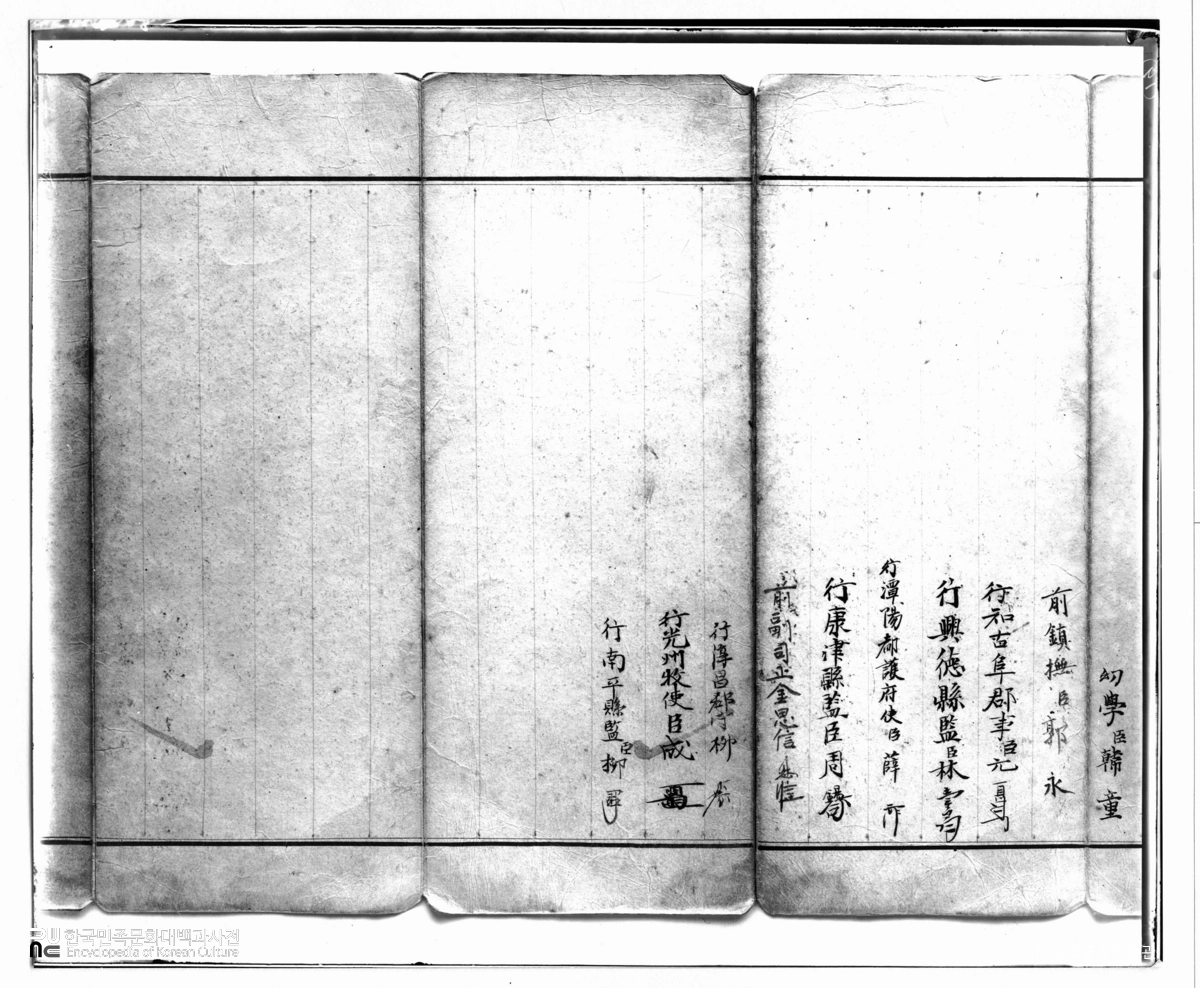 幼學臣韓童
前鎮撫臣郭永
行知古阜郡事臣元
行興德縣監臣林
行潭陽都護府使臣薛
行康津縣監臣周
前副司正金思信
行淳昌郡守柳
行光州牧使臣成
行南平縣監臣柳
한국민족문화대백과사전
Encyclopedia of Korean Culture